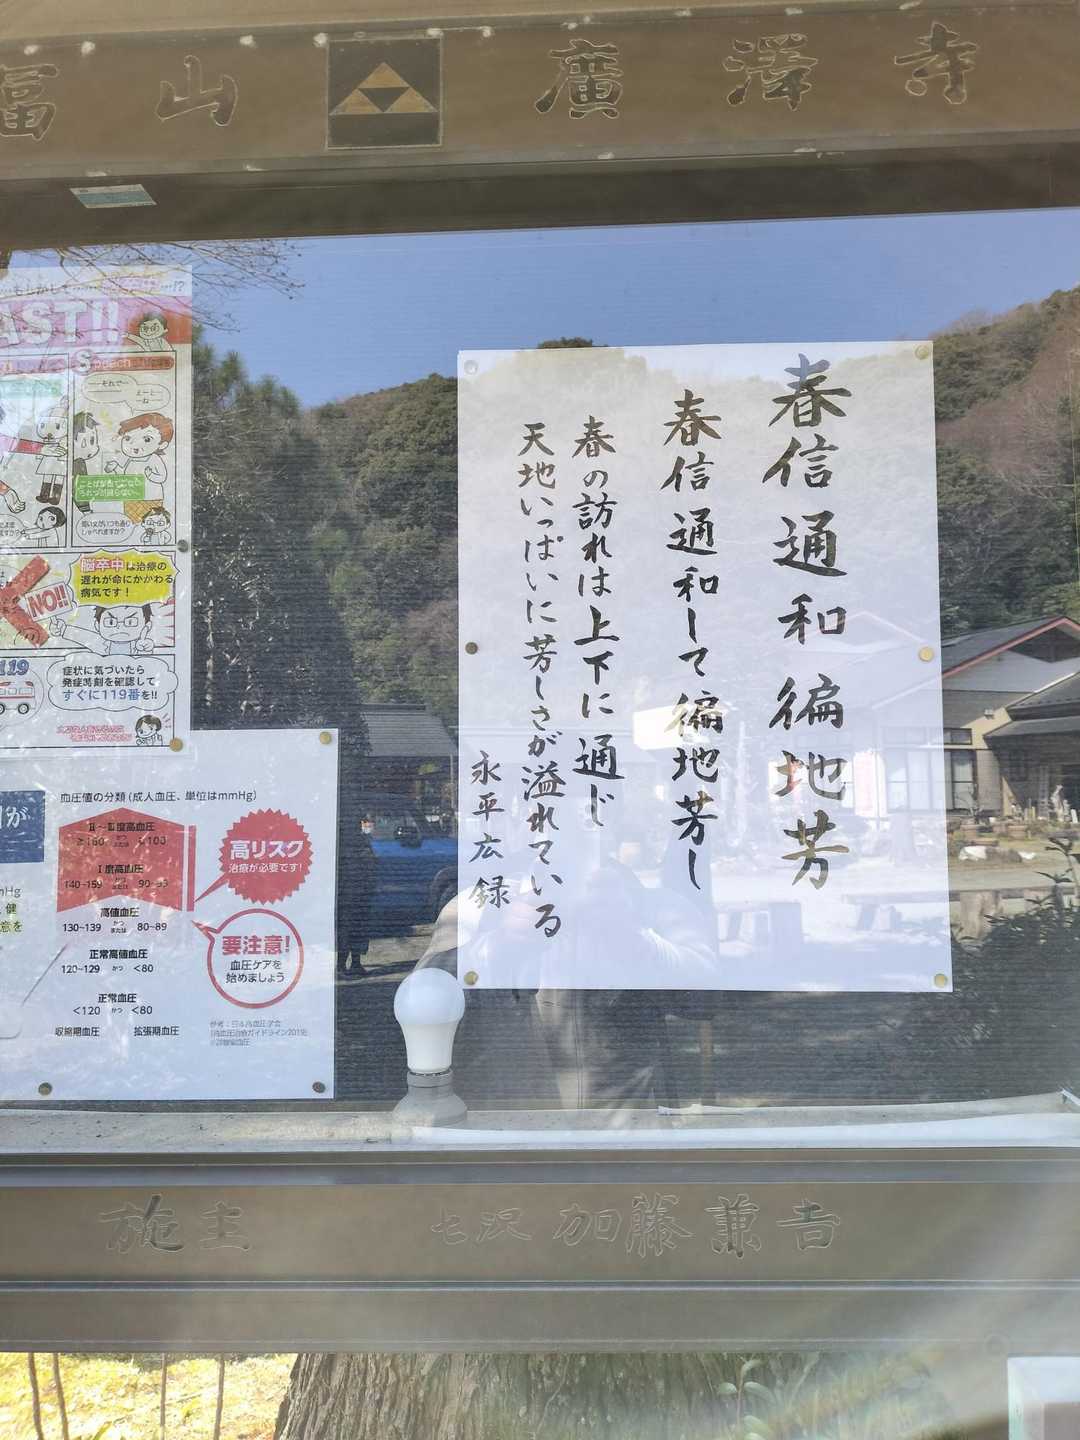 冨山 廣澤寺
春信通和徧地芳
春信通和して徧地芳し
春の訪れは上下に通じ
天地いっぱいに芳しさが溢れている
永平広録
AST!!
脳卒中は治療の
遅れが命にかかわる
病気です!
NO!!
119
症状に気づいたら
発症時刻を確認して
すぐに119番を!!
血圧値の分類(成人血圧、単位はmmHg)
Ⅱ~Ⅲ度高血圧
≧160 かつまたは ≧100
Ⅰ度高血圧
140~159 かつまたは 90~99
高値血圧
130~139 かつまたは 80~89
正常高値血圧
120~129 かつ <80
正常血圧
<120 かつ <80
収縮期血圧 拡張期血圧
高リスク
治療が必要です!
要注意!
血圧ケアを
始めましょう
参考:日本高血圧学会
施主 七沢 加藤兼吉